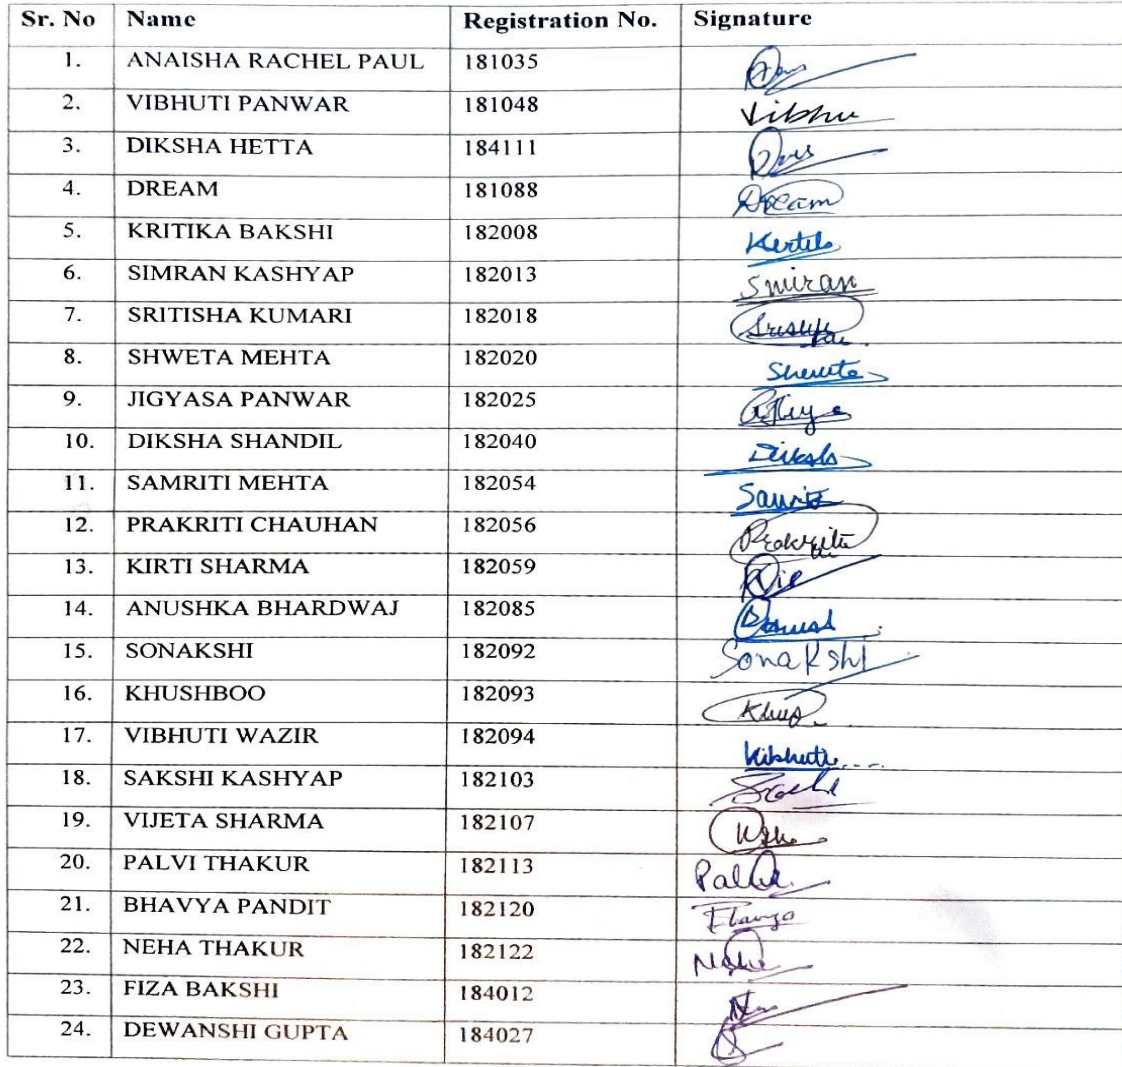 Sr. No Name Registration No. Signature
1. ANAISHA RACHEL PAUL 181035
2. VIBHUTI PANWAR 181048 Vibhu
3. DIKSHA HETTA 184111
4. DREAM 181088 Dream
5. KRITIKA BAKSHI 182008
6. SIMRAN KASHYAP 182013 Smiran
7. SRITISHA KUMARI 182018
8. SHWETA MEHTA 182020 Shweta
9. JIGYASA PANWAR 182025
10. DIKSHA SHANDIL 182040 Diksha
11. SAMRITI MEHTA 182054
12. PRAKRITI CHAUHAN 182056 Prakriti
13. KIRTI SHARMA 182059
14. ANUSHKA BHARDWAJ 182085
15. SONAKSHI 182092 Sonakshi
16. KHUSHBOO 182093
17. VIBHUTI WAZIR 182094 Vibhuti
18. SAKSHI KASHYAP 182103
19. VIJETA SHARMA 182107
20. PALVI THAKUR 182113
21. BHAVYA PANDIT 182120
22. NEHA THAKUR 182122 Neha
23. FIZA BAKSHI 184012
24. DEWANSHI GUPTA 184027